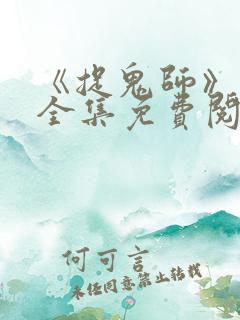 《捉鬼師》
全集免費閱
何可言
未经同意禁止转载